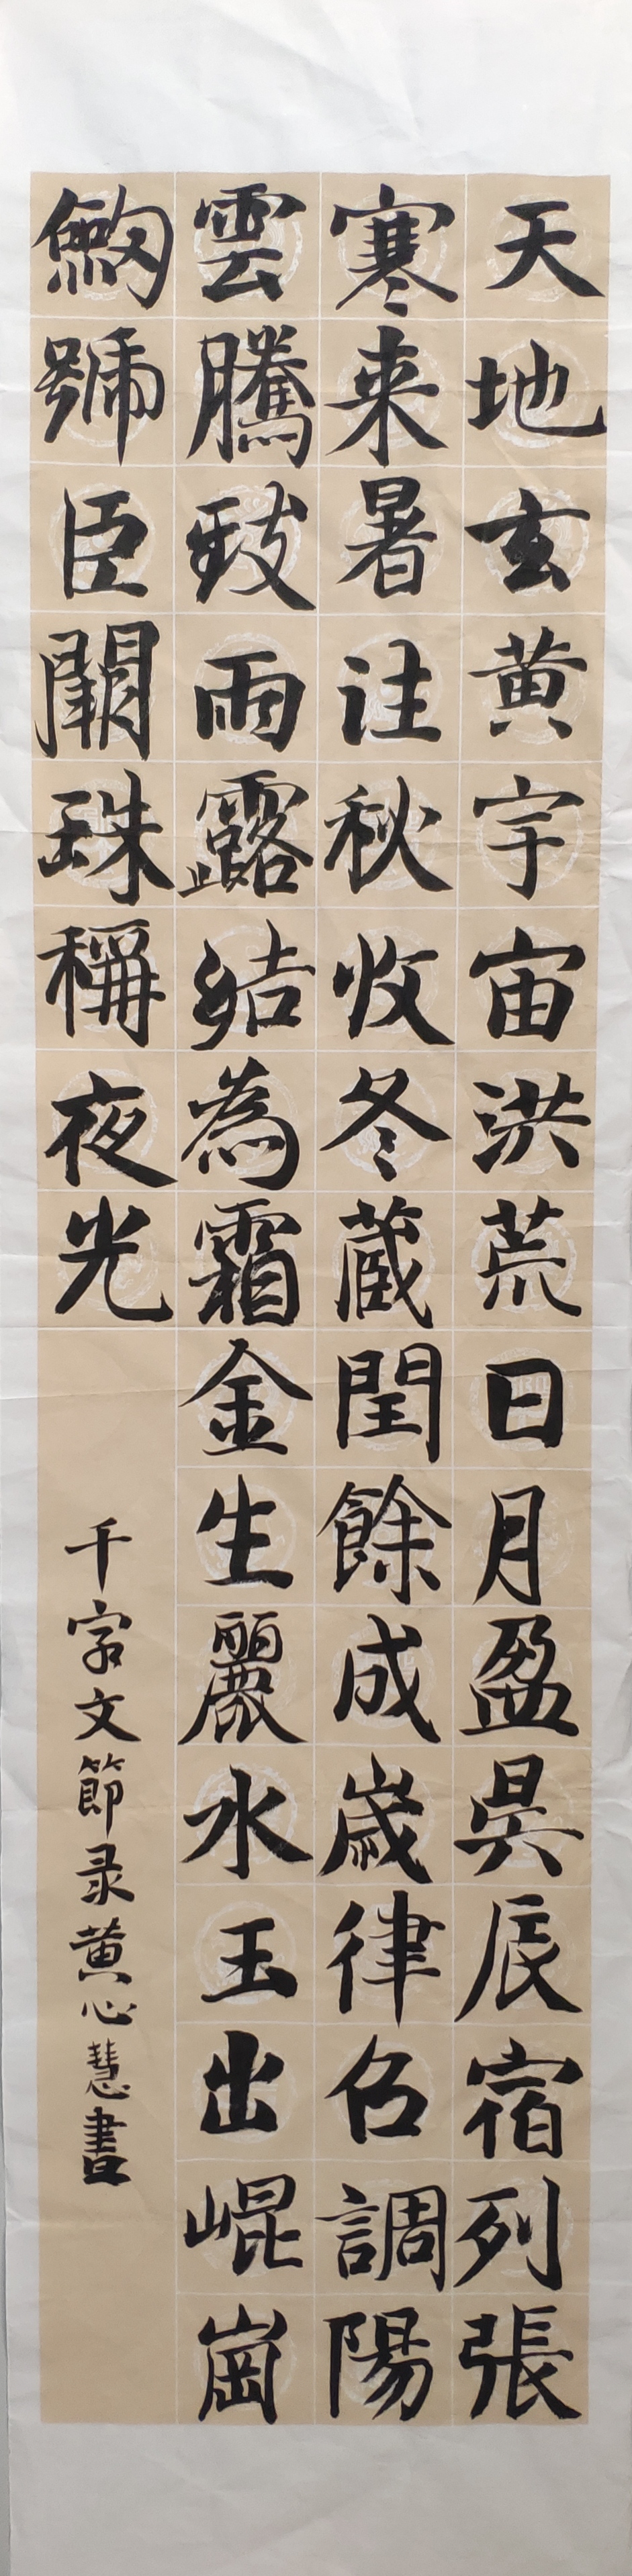 天地玄黄宇宙洪荒日月盈昃辰宿列張
寒来暑往秋收冬蔵閏餘成歲律召調陽
雲騰致雨露結為霜金生麗水玉出崐崗
劒號臣闕珠稱夜光
千字文節录黄心慧書